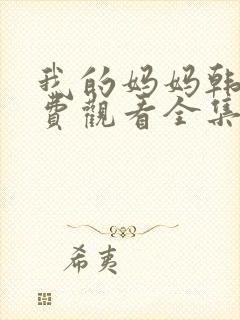 我的妈妈韩
費觀看全集
希夷